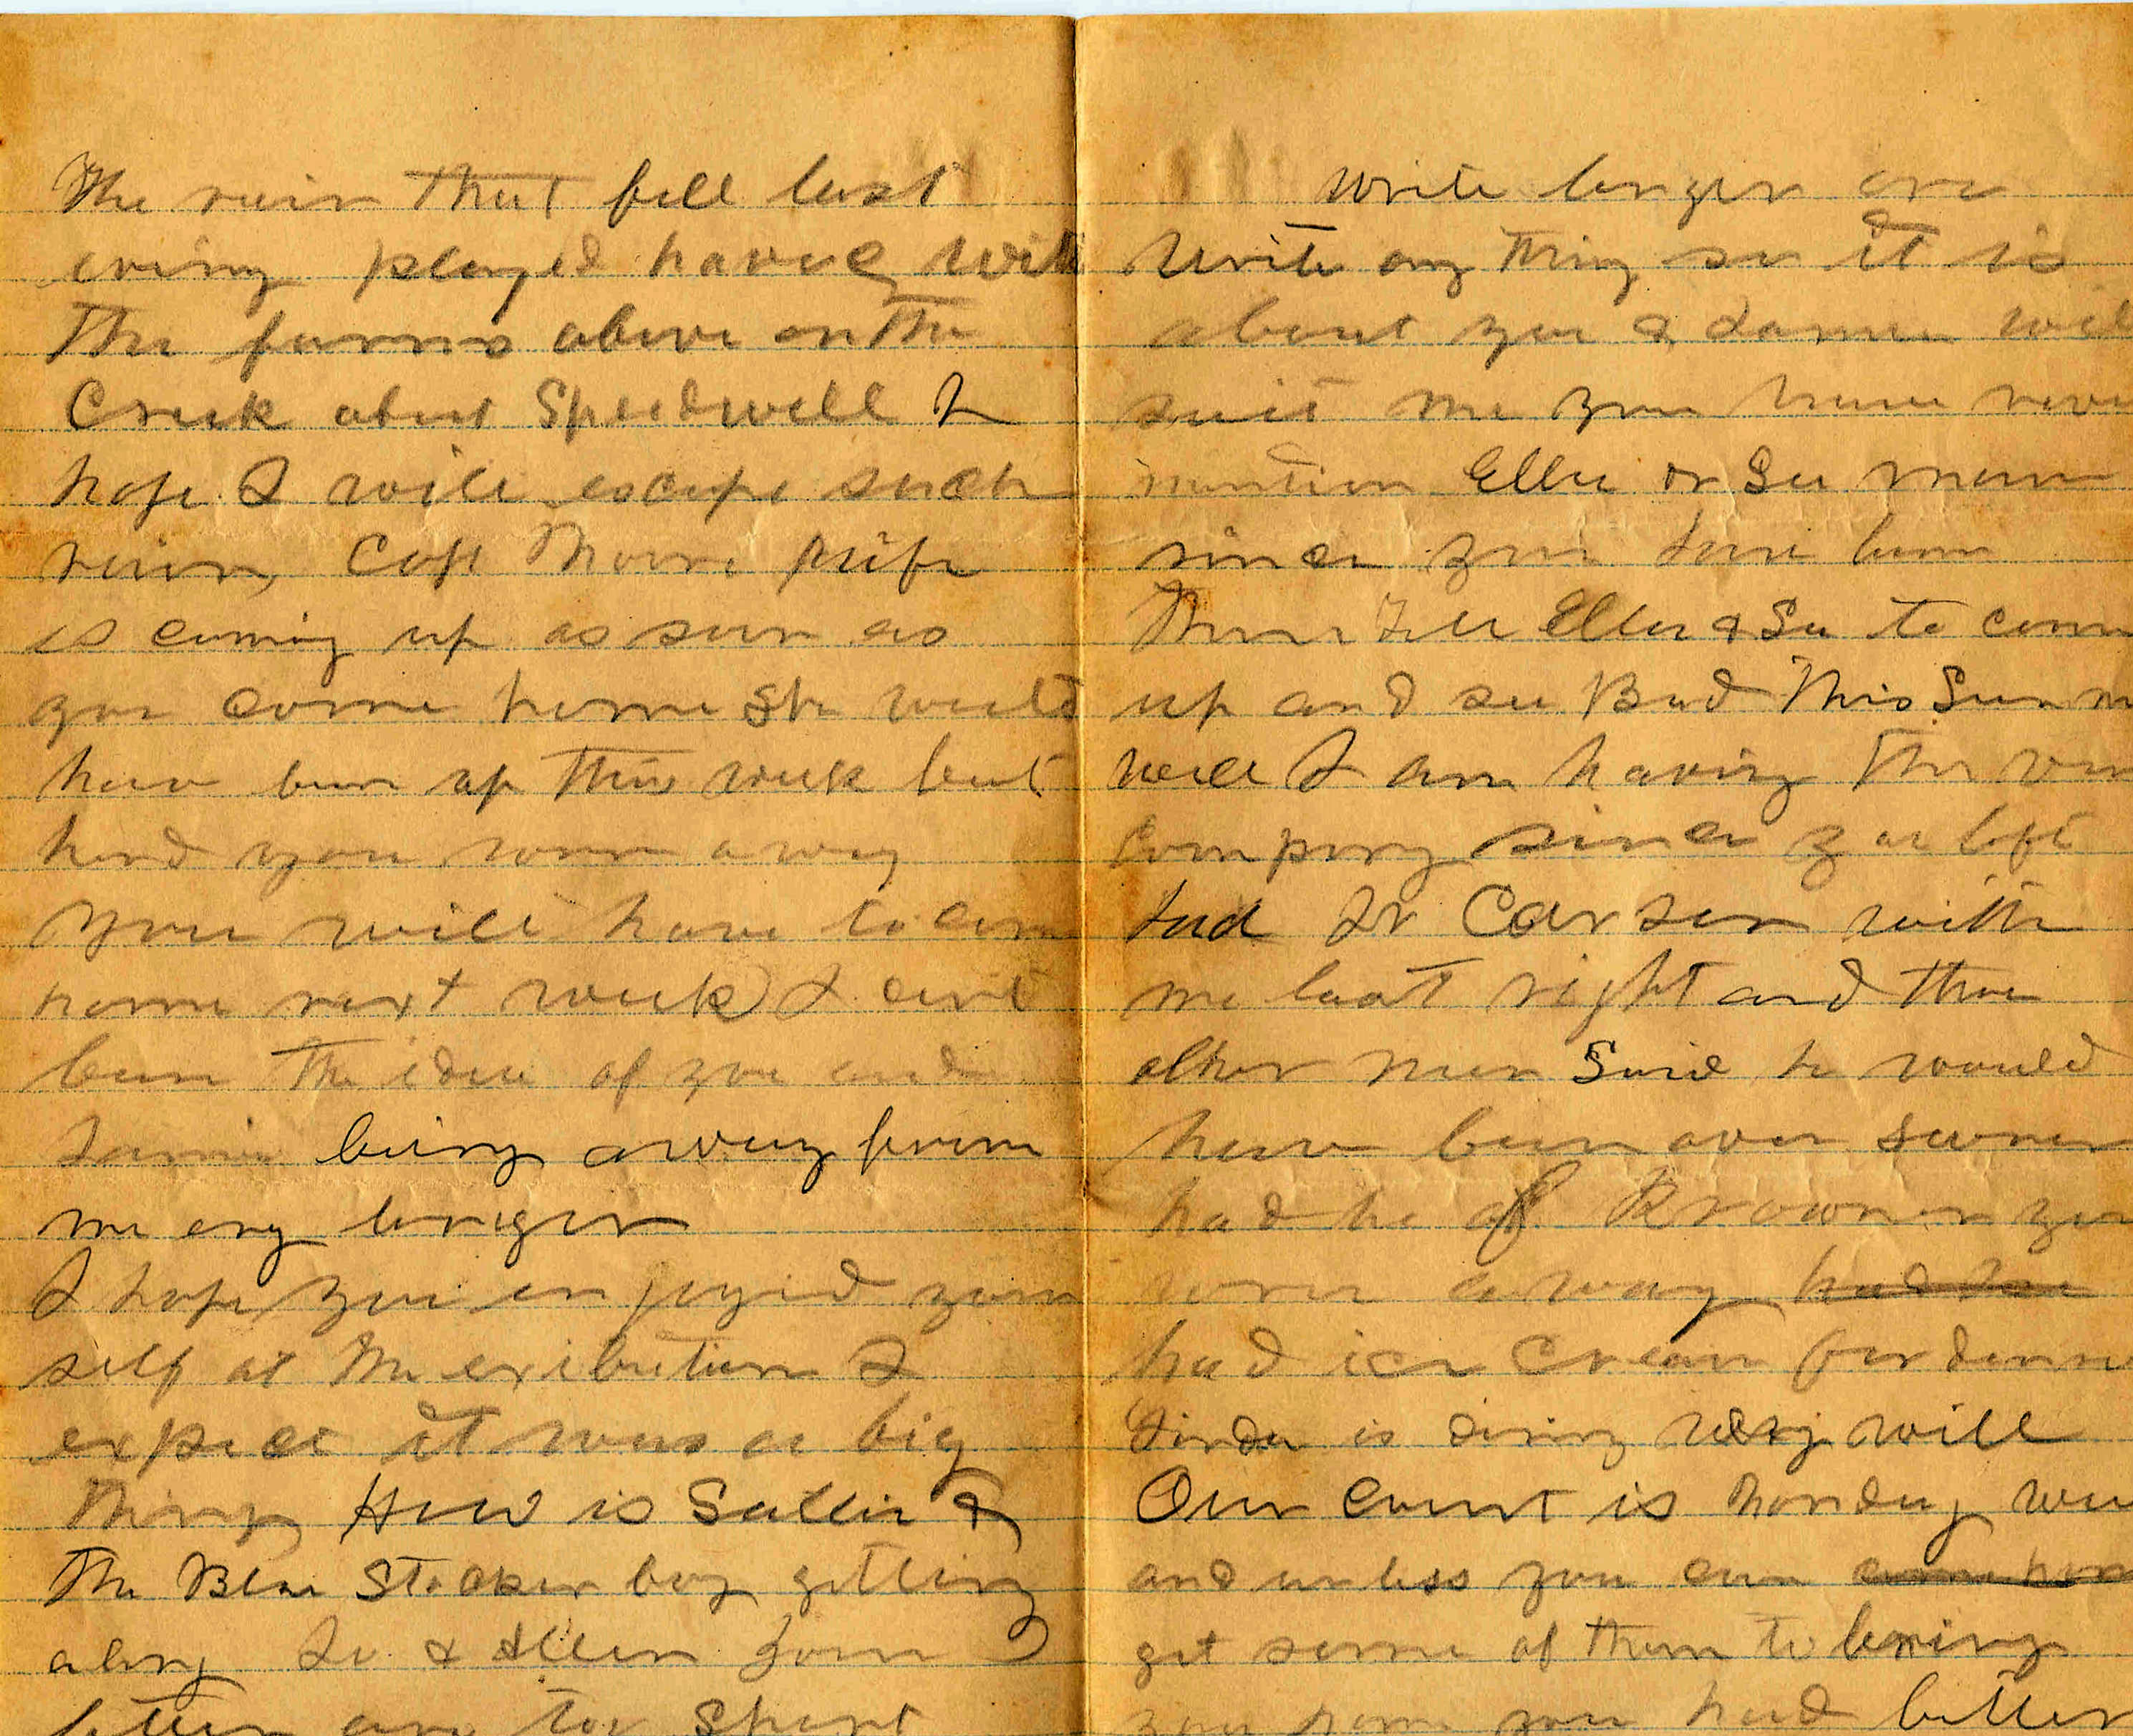 The rain that fell last
evening played havoc with
the farms above on the
Creek about Speedwell I
hope I will escape such
rain, Capt Moore wife
is coming up as soon as
you come home She would
have been up this week but
herd you were away
You will have to come
home next week I cant
bear the idea of you and
being away from
me any longer
I hope you enjoyed your
self at the exibution I
expect it was a big
thing How is Sallie &
the Blue Stocker boy getting
along &
letters are too Short
write longer ones
write any thing so it is
about you & will
suit me you have never
mention Ella or Su
since you have been
there Tell Ella & Su to come
up and see Bud this Sum
well I am having the
company since you left
had Dr Carson with
me last night and three
other men Said he would
have been over sooner
had he of Knowen you
were away
had ice Cream for dinner
is doing very well
Our Court is Monday
and unless you can
get some of them to bring
you home you had better